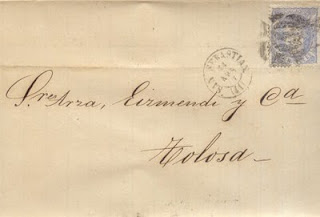 SAN SEBASTIAN
Sres Arza, Eizmendi y Cª
Tolosa